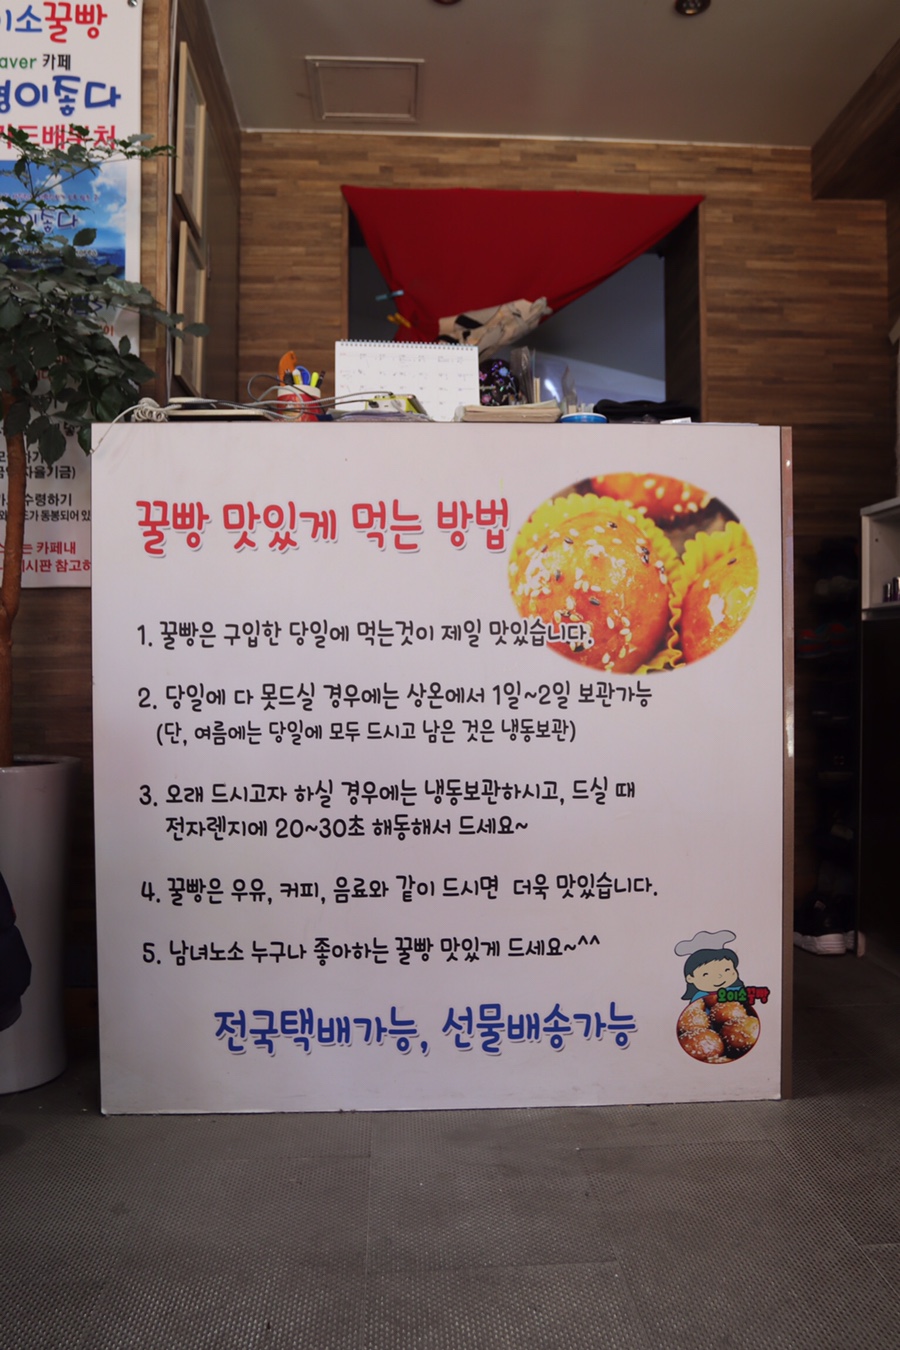 이소꿀빵
aver 카페
이좋다
이좋다
꿀빵 맛있게 먹는 방법
1. 꿀빵은 구입한 당일에 먹는것이 제일 맛있습니다.
2. 당일에 다 못드실 경우에는 상온에서 1일~2일 보관가능
(단, 여름에는 당일에 모두 드시고 남은 것은 냉동보관)
3. 오래 드시고자 하실 경우에는 냉동보관하시고, 드실 때
전자렌지에 20~30초 해동해서 드세요~
4. 꿀빵은 우유, 커피, 음료와 같이 드시면 더욱 맛있습니다.
5. 남녀노소 누구나 좋아하는 꿀빵 맛있게 드세요~^^
오이소꿀빵
전국택배가능, 선물배송가능
자율기금)
수령하기
가 동봉되어 있
는 카페내
시판 참고하